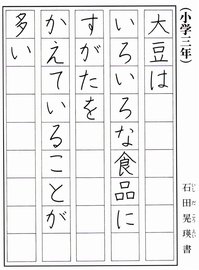 (小学三年)
大豆は
いろいろな食品に
すがたを
かえていることが
多い
石田晃瑛書